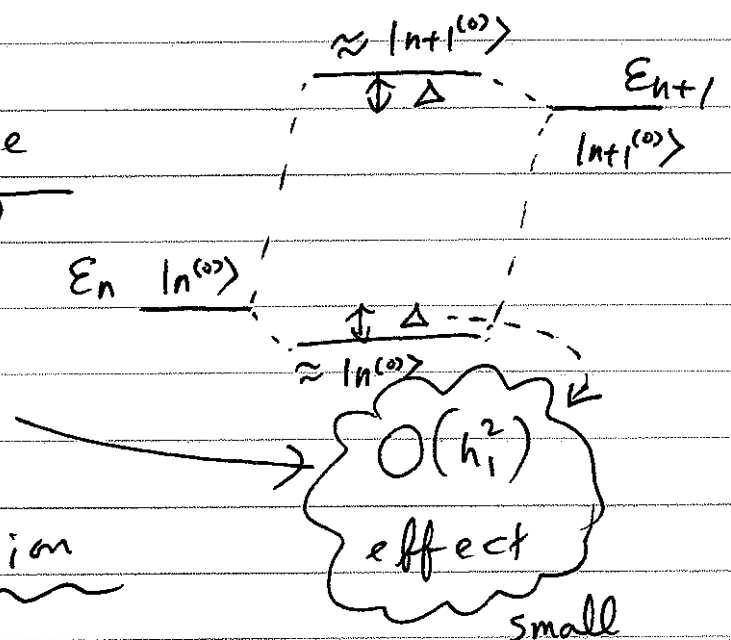 ≈ |n+1⁽⁰⁾⟩
Δ
ℰₙ₊₁
|n+1⁽⁰⁾⟩
e
ℰₙ |n⁽⁰⁾⟩
Δ
≈ |n⁽⁰⁾⟩
O(h₁²)
effect
ion
small